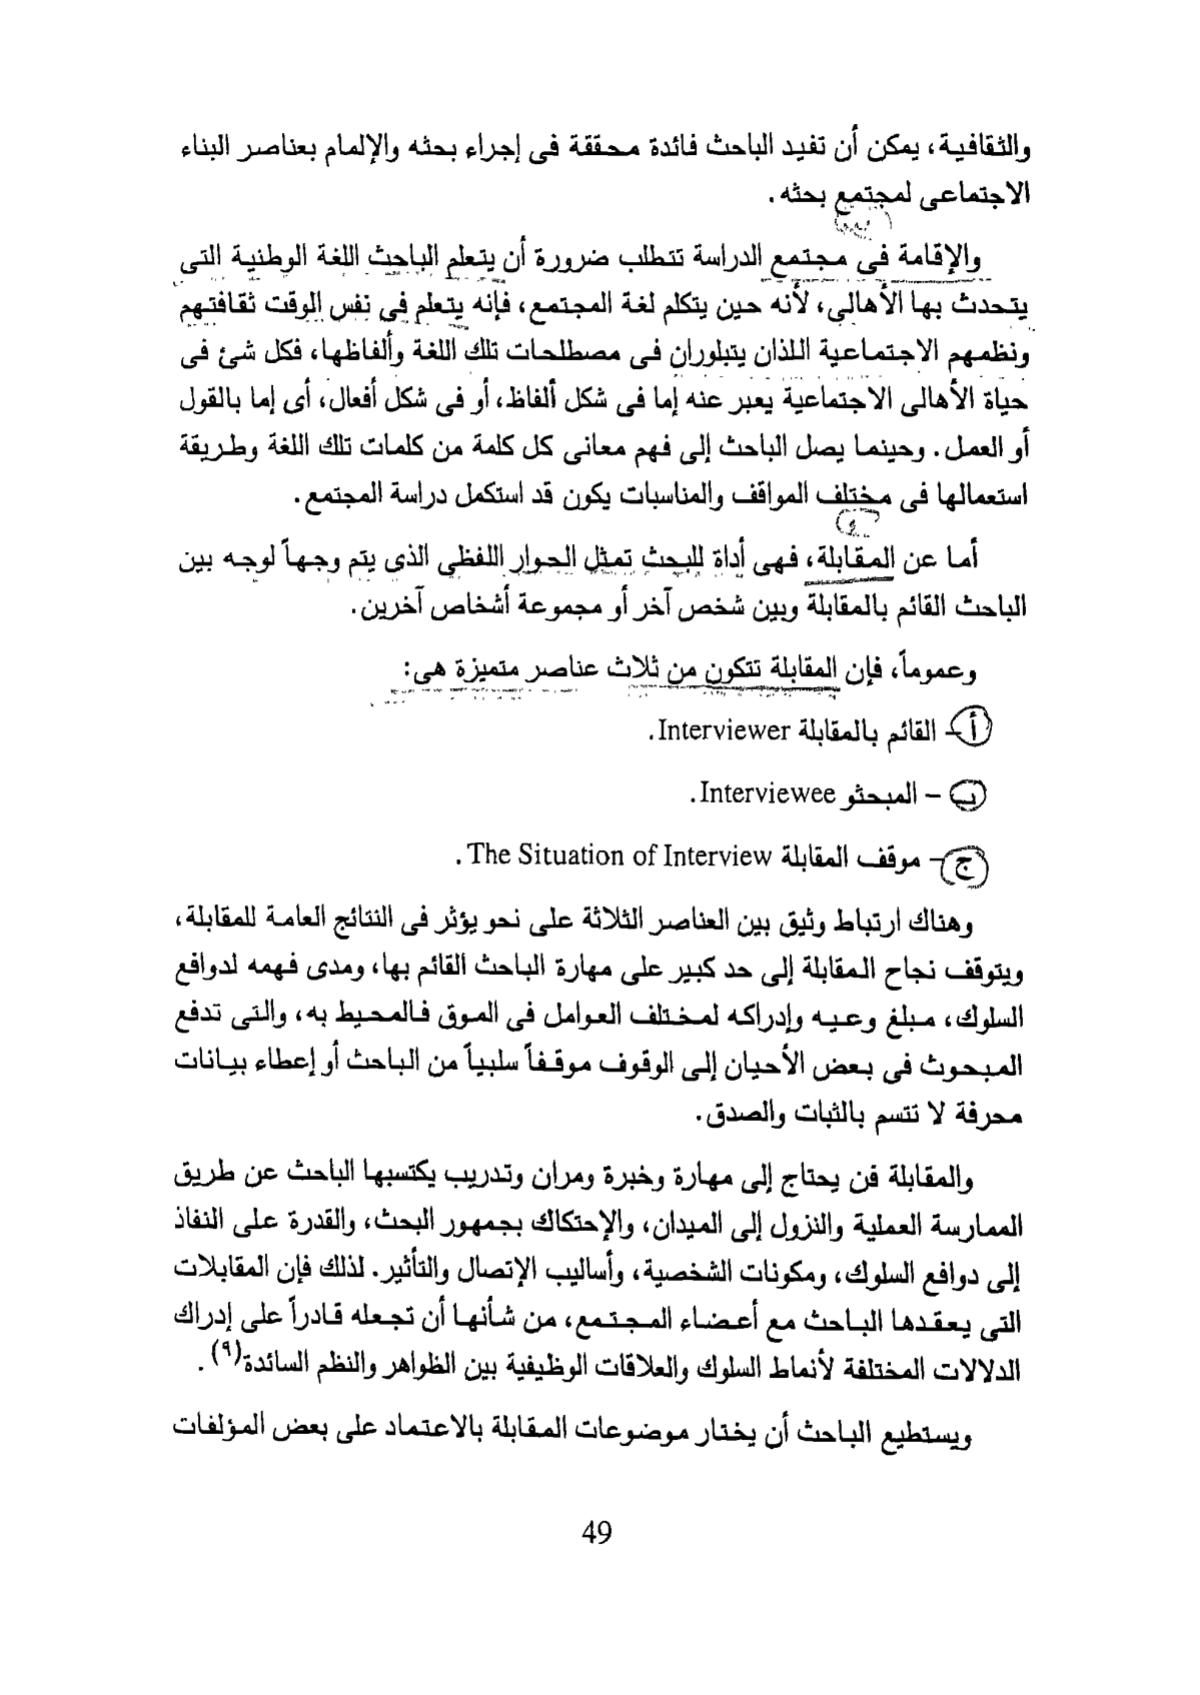 والثقافية، يمكن أن تفيد الباحث فائدة محققة فى إجراء بحثه والإلمام بعناصر البناء
الاجتماعى لمجتمع بحثه.
والإقامة فى مجتمع الدراسة تتطلب ضرورة أن يتعلم الباحث اللغة الوطنية التى
يتحدث بها الأهالى، لأنه حين يتكلم لغة المجتمع، فإنه يتعلم فى نفس الوقت ثقافتهم
ونظمهم الاجتماعية اللذان يتبلوران فى مصطلحات تلك اللغة وألفاظها، فكل شئ فى
حياة الأهالى الاجتماعية يعبر عنه إما فى شكل ألفاظ، أو فى شكل أفعال، أى إما بالقول
أو العمل. وحينما يصل الباحث إلى فهم معانى كل كلمة من كلمات تلك اللغة وطريقة
استعمالها فى مختلف المواقف والمناسبات يكون قد استكمل دراسة المجتمع.
أما عن المقابلة، فهى أداة للبحث تمثل الحوار اللفظى الذى يتم وجهاً لوجه بين
الباحث القائم بالمقابلة وبين شخص آخر أو مجموعة أشخاص آخرين.
وعموماً، فإن المقابلة تتكون من ثلاث عناصر متميزة هى:
أ- القائم بالمقابلة Interviewer.
ب - المبحثو Interviewee.
ج- موقف المقابلة The Situation of Interview.
وهناك ارتباط وثيق بين العناصر الثلاثة على نحو يؤثر فى النتائج العامة للمقابلة،
ويتوقف نجاح المقابلة إلى حد كبير على مهارة الباحث القائم بها، ومدى فهمه لدوافع
السلوك، مبلغ وعيه وإدراكه لمختلف العوامل فى الموق فالمحيط به، والتى تدفع
المبحوث فى بعض الأحيان إلى الوقوف موقفاً سلبياً من الباحث أو إعطاء بيانات
محرفة لا تتسم بالثبات والصدق.
والمقابلة فن يحتاج إلى مهارة وخبرة ومران وتدريب يكتسبها الباحث عن طريق
الممارسة العملية والنزول إلى الميدان، والإحتكاك بجمهور البحث، والقدرة على النفاذ
إلى دوافع السلوك، ومكونات الشخصية، وأساليب الإتصال والتأثير. لذلك فإن المقابلات
التى يعقدها الباحث مع أعضاء المجتمع، من شأنها أن تجعله قادراً على إدراك
الدلالات المختلفة لأنماط السلوك والعلاقات الوظيفية بين الظواهر والنظم السائدة(٩).
ويستطيع الباحث أن يختار موضوعات المقابلة بالاعتماد على بعض المؤلفات
49